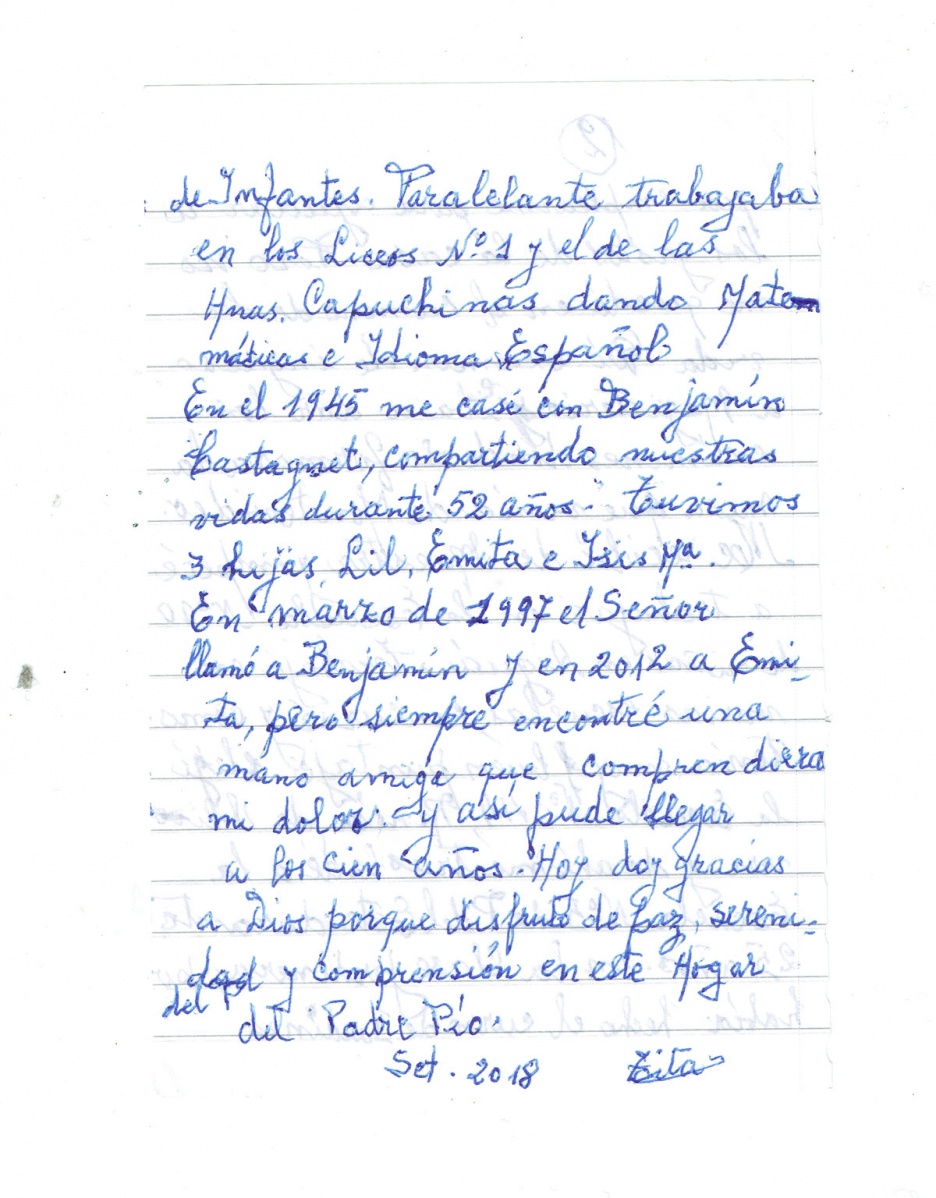 de Infantes. Paralelante trabajaba
en los Liceos Nº 1 y el de las
Hnas. Capuchinas dando Mate
máticas e Idioma Español
En el 1945 me casé con Benjamín
Castagnet, compartiendo nuestras
vidas durante 52 años. Tuvimos
3 hijas, Lil, Emita e Isis Mª.
En marzo de 1997 el Señor
llamó a Benjamín y en 2012 a Emi-
ta, pero siempre encontré una
mano amiga que comprendiera
mi dolor. y así pude llegar
a los cien años. Hoy doy gracias
a Dios porque disfruto de paz, sereni-
dad y comprensión en este Hogar
del
del Padre Pío.
Set. 2018 Zita